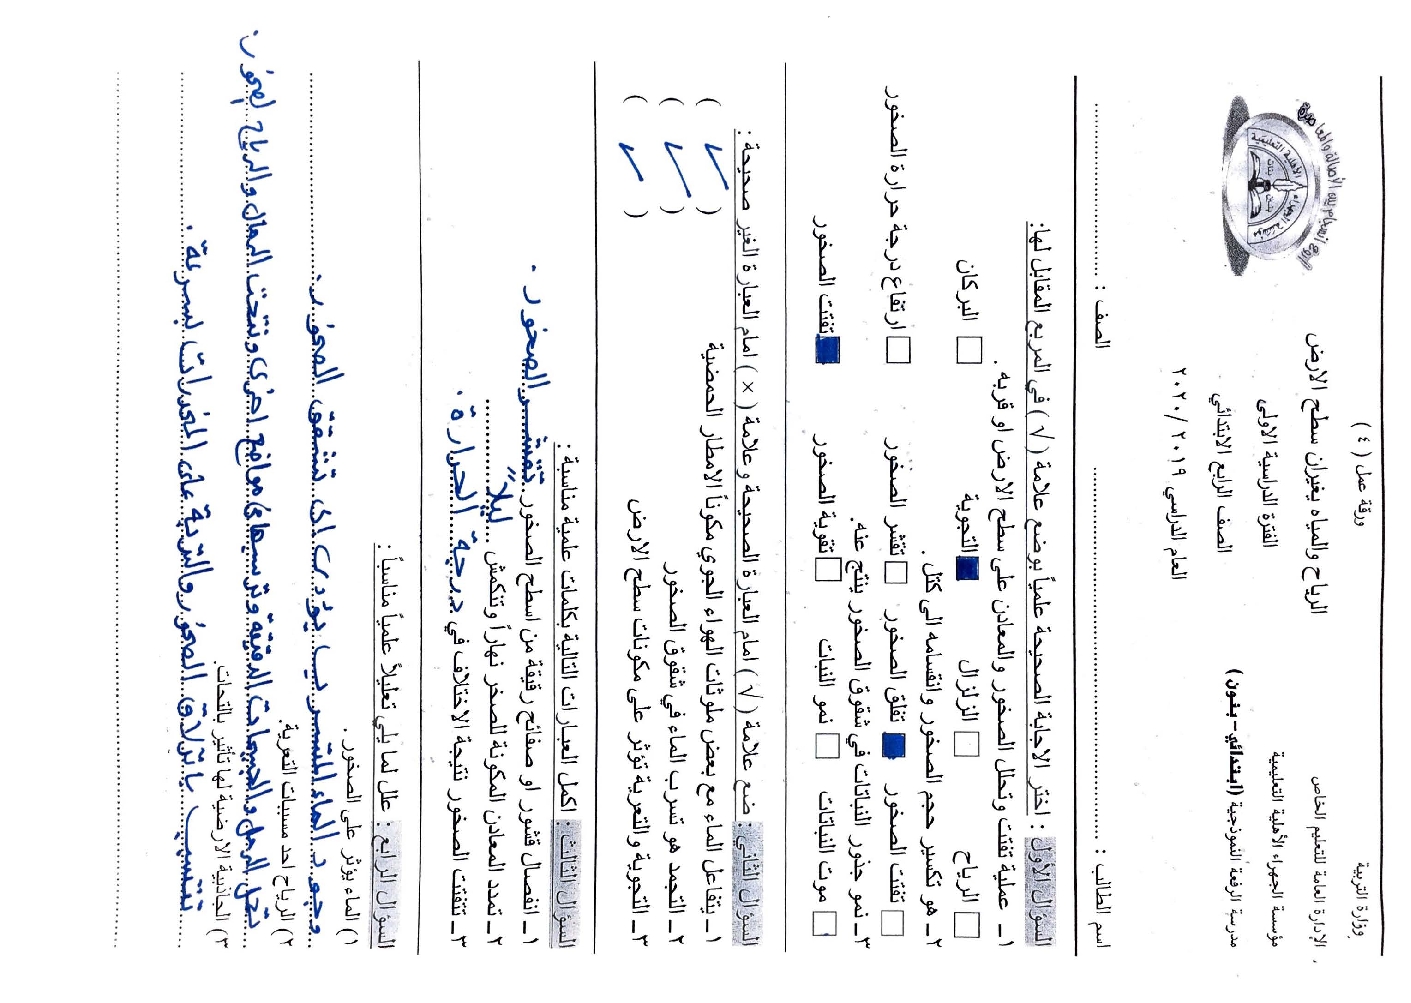 وزارة التربية
الإدارة العامة للتعليم الخاص
مؤسسة الجهراء الأهلية التعليمية
مدرسة الرفعة النموذجية (ابتدائي - بنون)
ورقة عمل ( ٤ )
الرياح والمياه يغيران سطح الارض
الفترة الدراسية الاولى
الصف الرابع الابتدائي
العام الدراسي ٢٠١٩ / ٢٠٢٠
مؤسسة الجهراء
الأهلية التعليمية
بنات بنين
اسم الطالب : .......... الصف : ..........
السؤال الاول : اختر الاجابة الصحيحة علمياً بوضع علامة ( √ ) في المربع المقابل لها:
١ ـ عملية تفتت وتحلل الصخور والمعادن على سطح الارض او قربه .
□ الرياح □ الزلزال ■ التجوية □ البركان
٢ ـ هو تكسير حجم الصخور وانقسامه الى كتل .
□ تفتت الصخور ■ تفلق الصخور □ تقشر الصخور □ ارتفاع درجة حرارة الصخور
٣ ـ نمو جذور النباتات في شقوق الصخور ينتج عنه.
□ موت النباتات □ نمو النبات □ تقوية الصخور ■ تفتت الصخور
السؤال الثاني : ضع علامة ( √ ) امام العبارة الصحيحة وعلامة ( × ) امام العبارة الغير صحيحة :
١ ـ يتفاعل الماء مع بعض ملوثات الهواء الجوي مكوناً الامطار الحمضية ( ✓ )
٢ ـ التجمد هو تسرب الماء في شقوق الصخور ( ✓ )
٣ ـ التجوية والتعرية تؤثر على مكونات سطح الارض ( ✓ )
السؤال الثالث : اكمل العبارات التالية بكلمات علمية مناسبة :
١ ـ انفصال قشور او صفائح رقيقة من اسطح الصخور تقشر الصخور .
٢ ـ تمدد المعادن المكونة للصخر نهاراً وتنكمش ليلاً
٣ ـ تتفتت الصخور نتيجة الاختلاف في درجة الحرارة .
السؤال الرابع : علل لما يلي تعليلاً علمياً مناسباً :
١) الماء يؤثر على الصخور .
وجود الماء المتسرب يؤدي الى تشقق الصخور .
٢) الرياح احد مسببات التعرية.
تحمل الرمل والحبيبات الدقيقة وترسبها في مواضع اخرى وتنحت الرمال والرياح الصخور .
٣) الجاذبية الارضية لها تأثير بالنحات.
تتسبب بانزلاق الصخور والتربة على المنحدرات بسرعة .